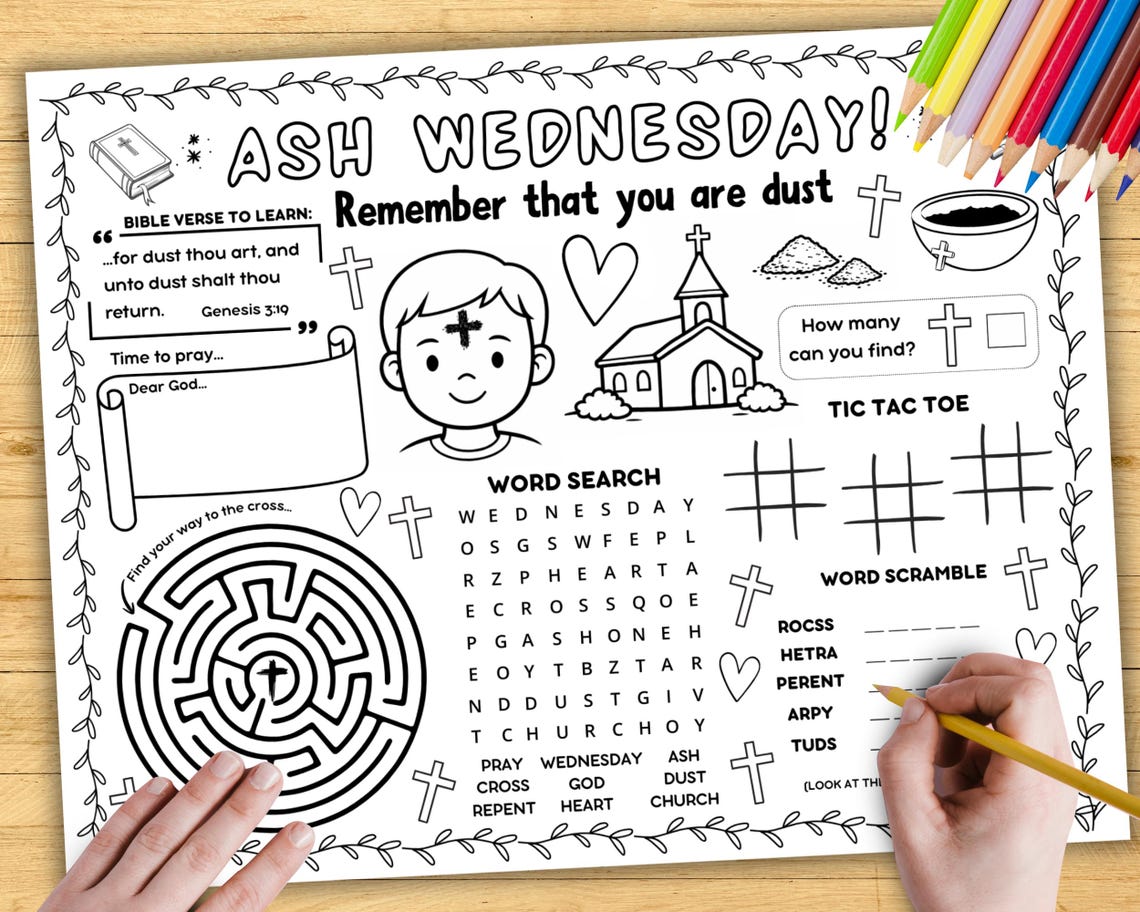 ASH WEDNESDAY!
Remember that you are dust
BIBLE VERSE TO LEARN:
“
...for dust thou art, and
unto dust shalt thou
return. Genesis 3:19
”
Time to pray...
Dear God...
How many
can you find?
TIC TAC TOE
Find your way to the cross...
WORD SEARCH
W E D N E S D A Y
O S G S W F E P L
R Z P H E A R T A
E C R O S S Q O E
P G A S H O N E H
E O Y T B Z T A R
N D D U S T G I V
T C H U R C H O Y
PRAY WEDNESDAY ASH
CROSS GOD DUST
REPENT HEART CHURCH
WORD SCRAMBLE
ROCSS _ _ _ _ _
HETRA _ _ _ _ _
PERENT
ARPY
TUDS
(LOOK AT THE